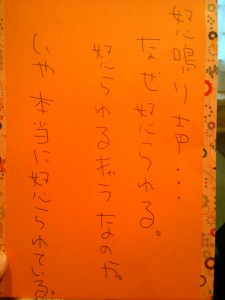 怒鳴り声…
なぜ怒られる。
怒られるぎりなのか。
いや本当に怒られている。